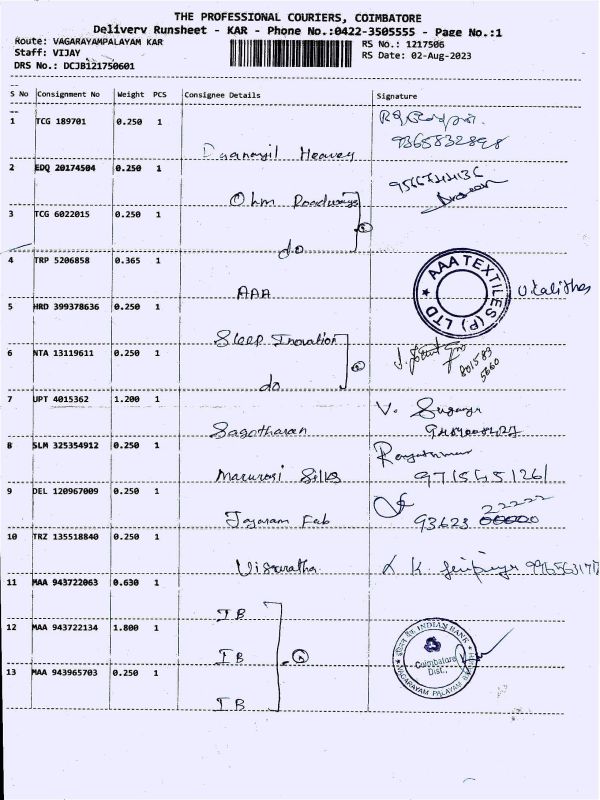 THE PROFESSIONAL COURIERS, COIMBATORE
Delivery Runsheet - KAR - Phone No.:0422-3505555 - Page No.:1
Route: VAGARAYAMPALAYAM KAR
RS No.: 1217506
Staff: VIJAY
RS Date: 02-Aug-2023
DRS No.: DCJB121750601
S No Consignment No Weight PCS Consignee Details Signature
1 TCG 189701 0.250 1
9365832898
Heavey
2 EDQ 20174504 0.250 1
Ohm Roadways
3 TCG 6022015 0.250 1
do
4 TRP 5206858 0.365 1
AAA TEXTILES (P) LTD
AAA
5 HRD 399378636 0.250 1
Sleep Inovation
6 NTA 13119611 0.250 1
801583
5660
do
7 UPT 4015362 1.200 1
V.
Sagotharan
8 SLM 325354912 0.250 1
Silks
9715451261
9 DEL 120967009 0.250 1
22222
Jayaram Fab
93623
10 TRZ 135518840 0.250 1
11 MAA 943722063 0.630 1
IB
12 MAA 943722134 1.800 1
INDIAN BANK
IB
Coimbatore
Dist.,
VAGARAYAM PALAYAM
13 MAA 943965703 0.250 1
IB